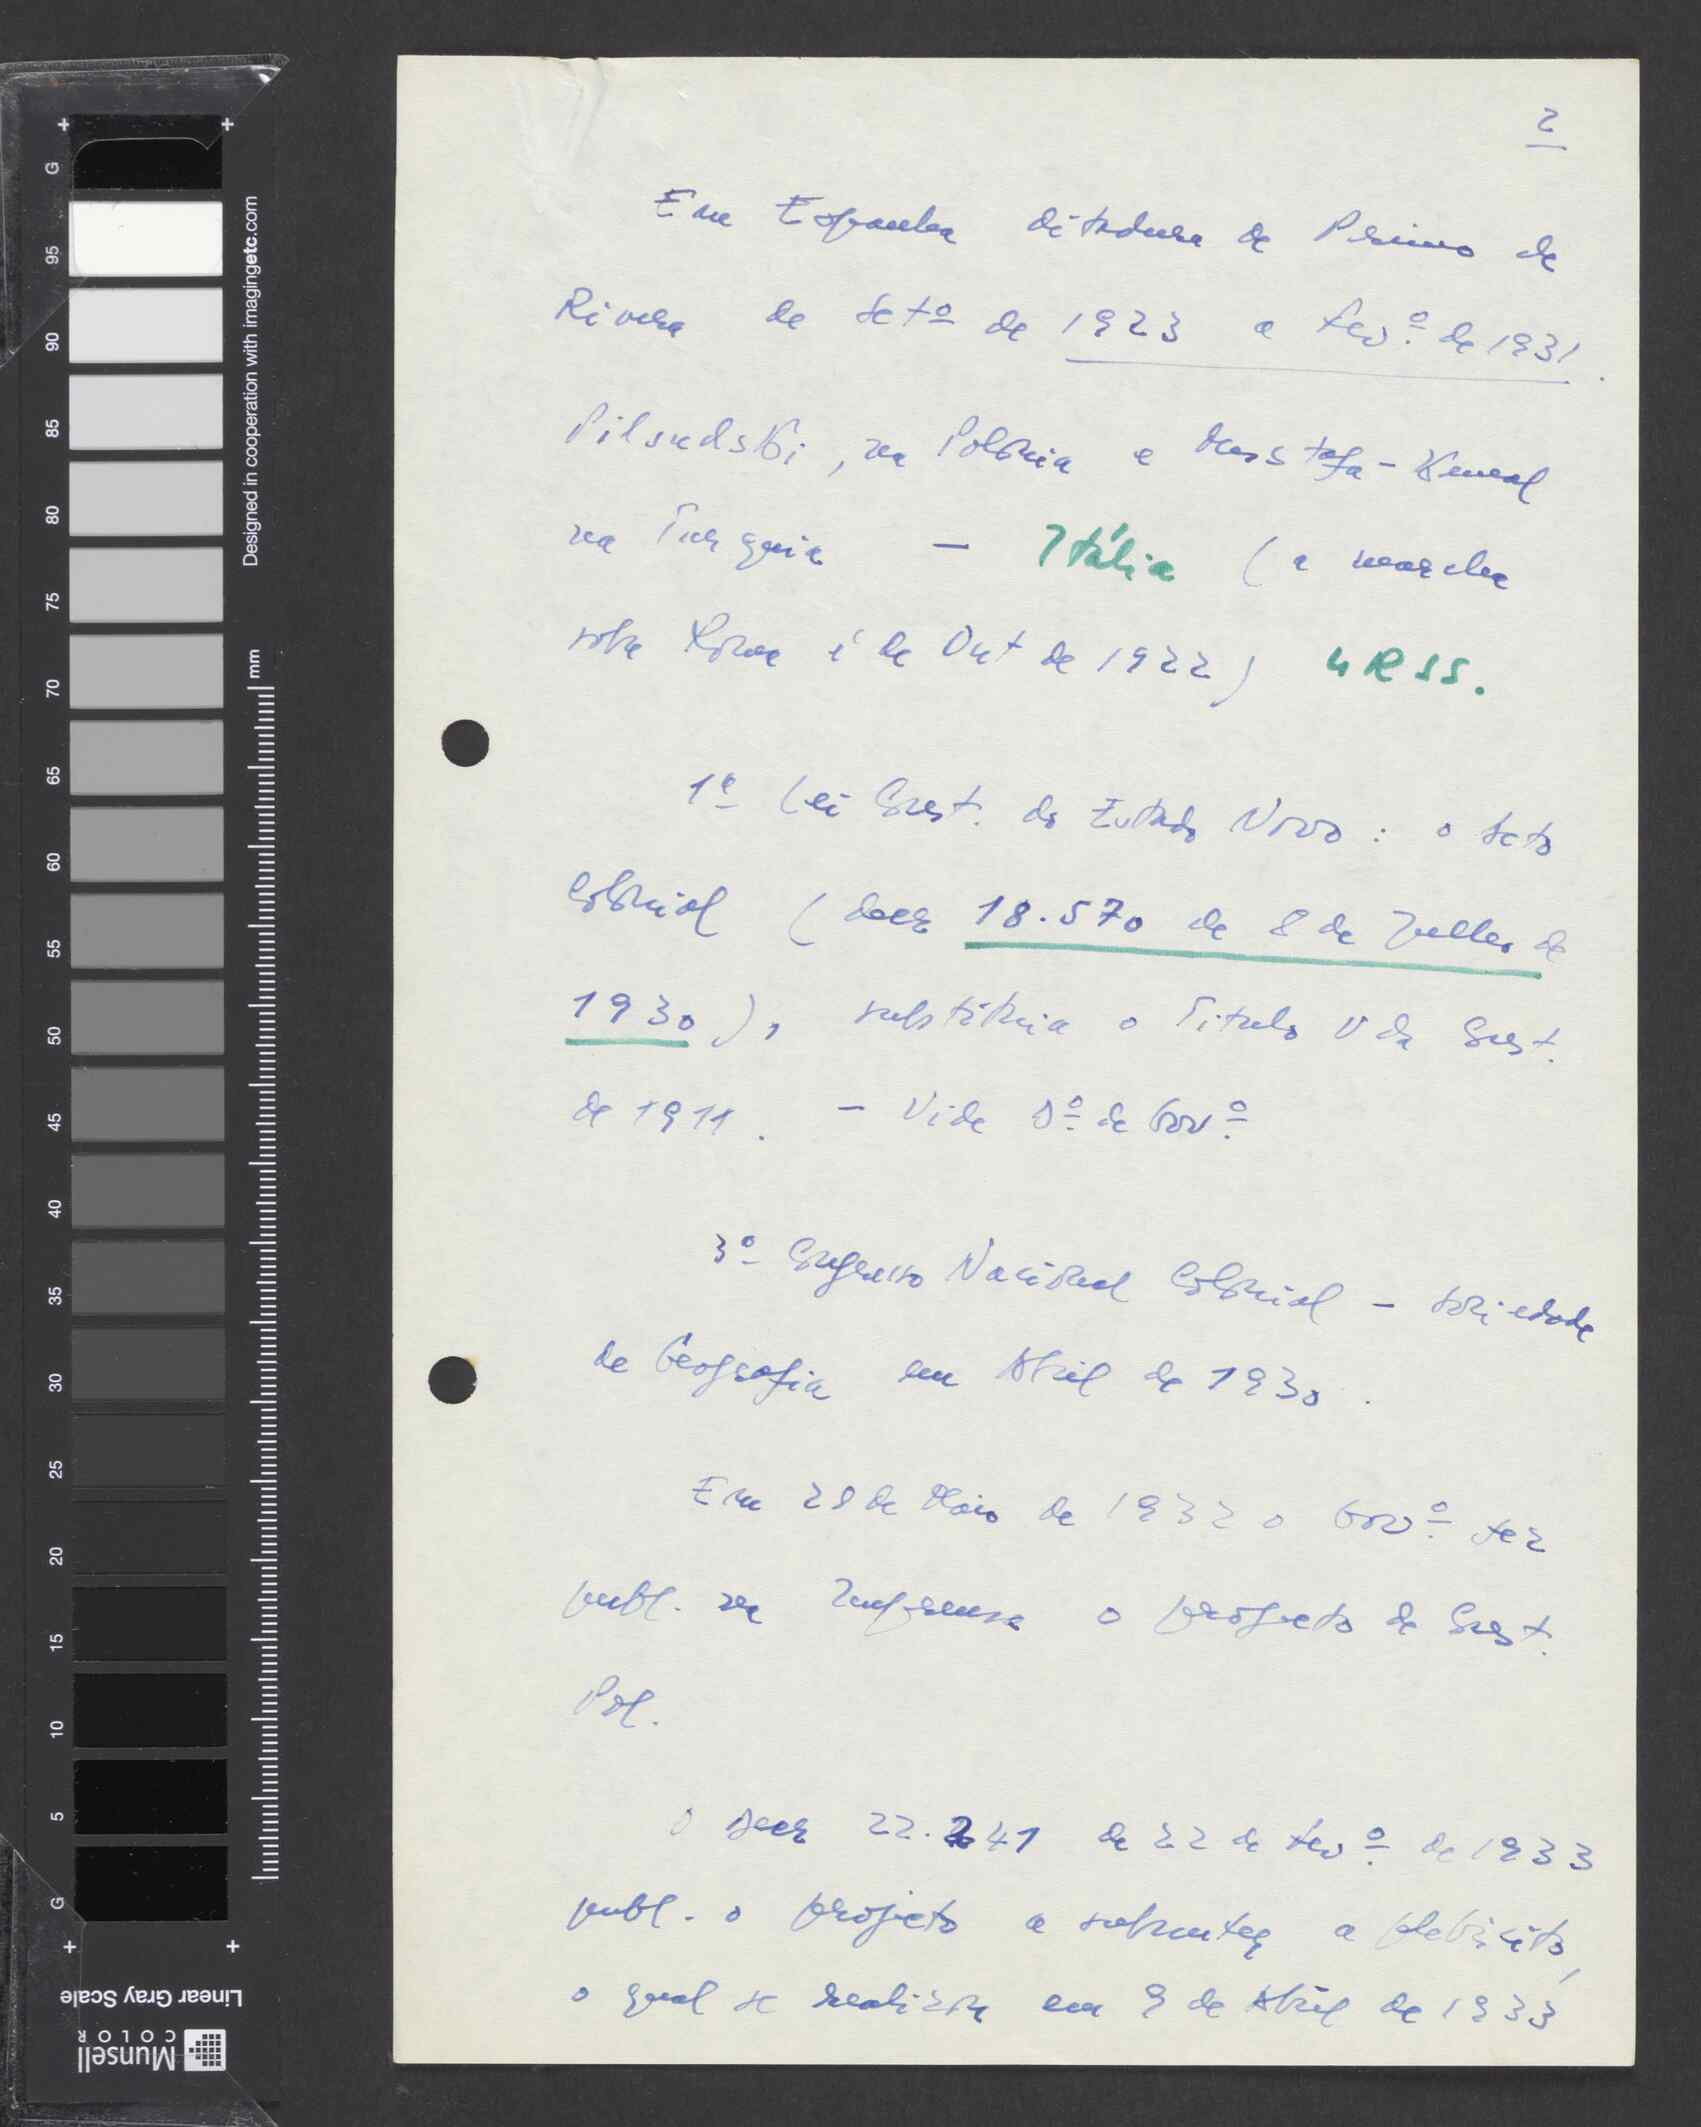 2
Em Espanha ditadura de Primo de
Rivera de Setº de 1923 a Fevº de 1931.
Pilsudski, na Polónia e Mustafa-Kemal
na Turquia — Itália (a marcha
sobre Roma é de Out de 1922) URSS.
1ª Lei Const. do Estado Novo: o Acto
Colonial (decr 18.570 de 8 de Julho de
1930), substituia o Titulo V da Const.
de 1911. — Vide Dº de Govº
3º Congresso Nacional Colonial — Sociedade
de Geografia em Abril de 1930.
Em 28 de Maio de 1932 o Govº fez
publ. na Imprensa o projecto de Const.
Pol.
O Decr 22.241 de 22 de Fevº de 1933
publ. o projecto a submeter a plebiscito,
o qual se realizou em 9 de Abril de 1933
G
95
90
85
80
75
70
65
60
55
50
45
40
35
30
25
20
15
10
5
G
Designed in cooperation with imagingetc.com
mm
Linear Gray Scale
Munsell
COLOR